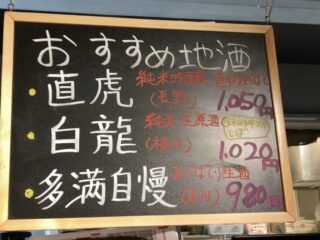 おすすめ地酒
直虎 純米吟醸
(長野) 1,050円
白龍 純米生原酒
(福井) 1,020円
多満自慢 あらばしり生酒
980円